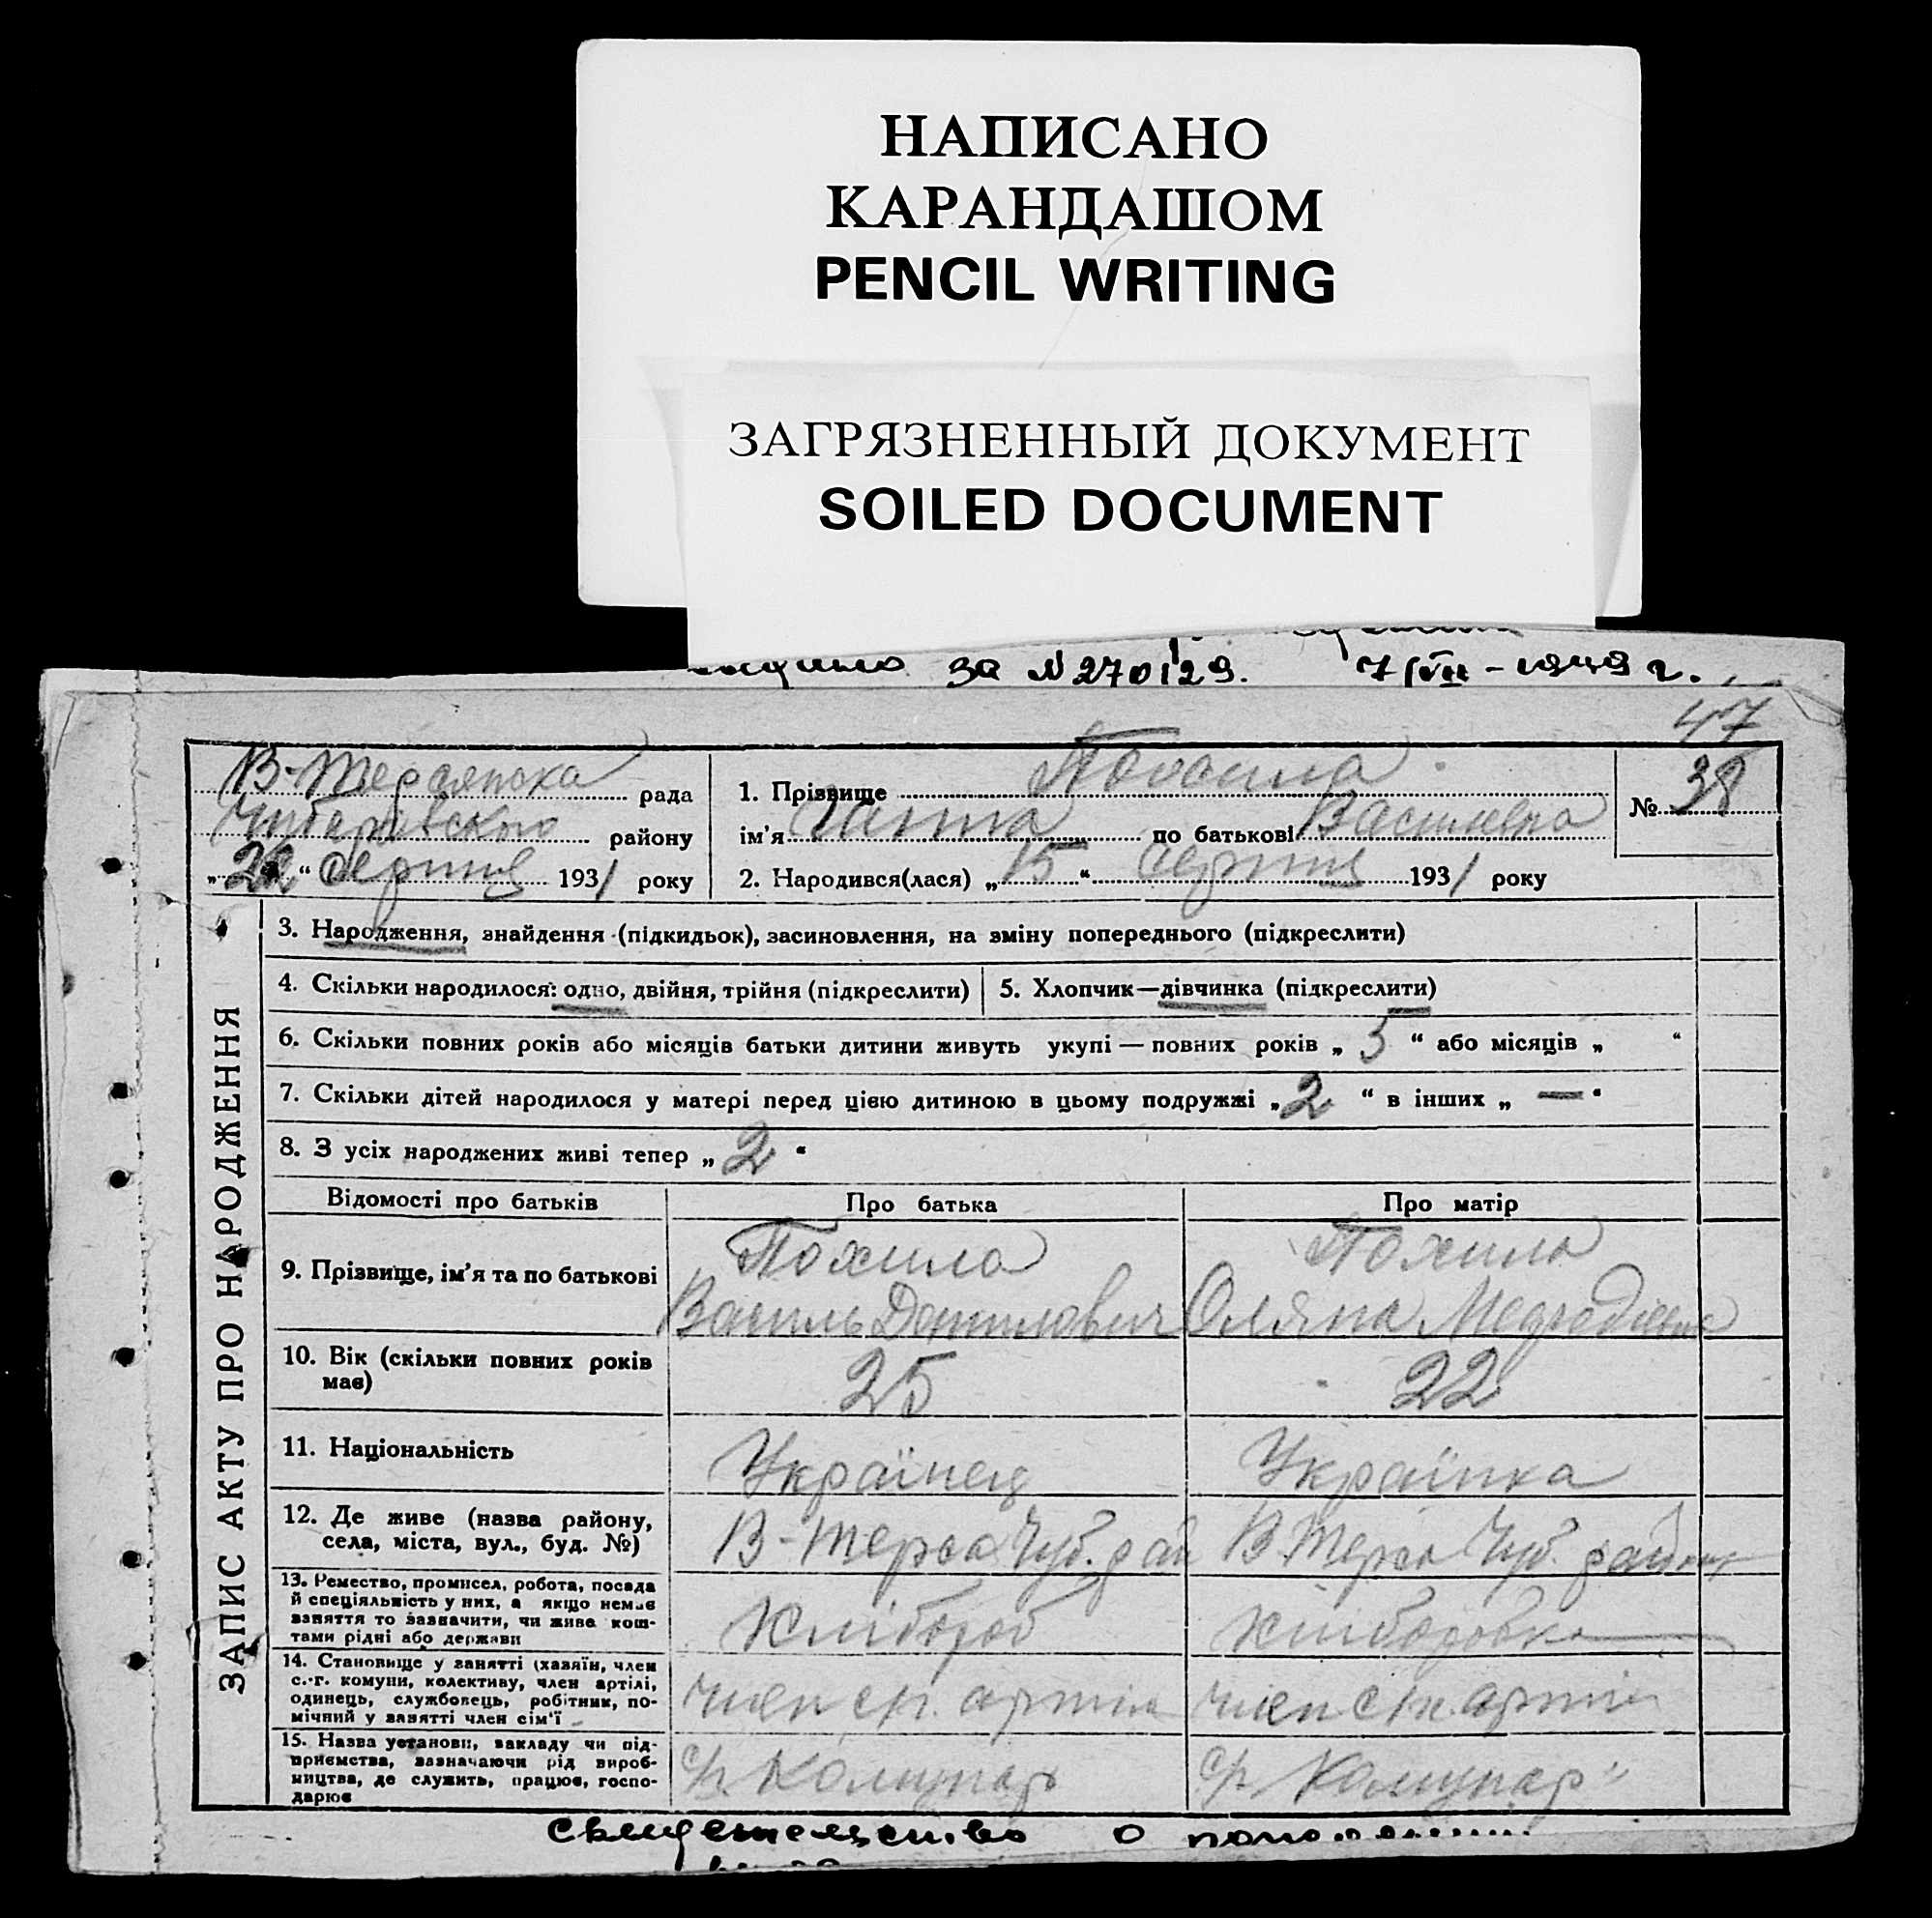 НАПИСАНО
КАРАНДАШОМ
PENCIL WRITING
ЗАГРЯЗНЕННЫЙ ДОКУМЕНТ
SOILED DOCUMENT
за N 270129. 7/VII - 1949 г.
47
В-Терсянска рада
Чубарівського району
„22“ Серпня 1931 року
1. Прізвище Похила
ім’я Ганна по батькові Василевна
2. Народився(лася) „15“ серпня 1931 року
№ 38
ЗАПИС АКТУ ПРО НАРОДЖЕННЯ
3. Народження, знайдення (підкидьок), засиновлення, на зміну попереднього (підкреслити)
4. Скільки народилося: одно, двійня, трійня (підкреслити) 5. Хлопчик—дівчинка (підкреслити)
6. Скільки повних років або місяців батьки дитини живуть укупі — повних років „ 5 “ або місяців „ “
7. Скільки дітей народилося у матері перед цією дитиною в цьому подружжі „2 “ в інших „ — “
8. З усіх народжених живі тепер „ 2 “
Відомості про батьків Про батька Про матір
9. Прізвище, ім’я та по батькові
Похила
Василь Данилович
Похила
Оляна
10. Вік (скільки повних років
має)
25 22
11. Національність Українец Українка
12. Де живе (назва району,
села, міста, вул., буд. №)
В-Терса Чуб. рай В Терса Чуб. району
13. Ремество, промисел, робота, посада
й спеціяльність у них, а якщо немає
заняття то зазначити, чи живе кош-
тами рідні або держави
Хлібороб Хлиборобка
14. Становище у занятті (хазяїн, член
с.-г. комуни, колективу, член артілі,
одинець, службовець, робітник, по-
мічний у занятті член сім’ї
член с/г. артіли член с/г. артіли
15. Назва установи, закладу чи під-
приємства, зазначаючи рід вироб-
ництва, де служить, працює, госпо-
дарює
Комунар Комунар"
свидетельство о